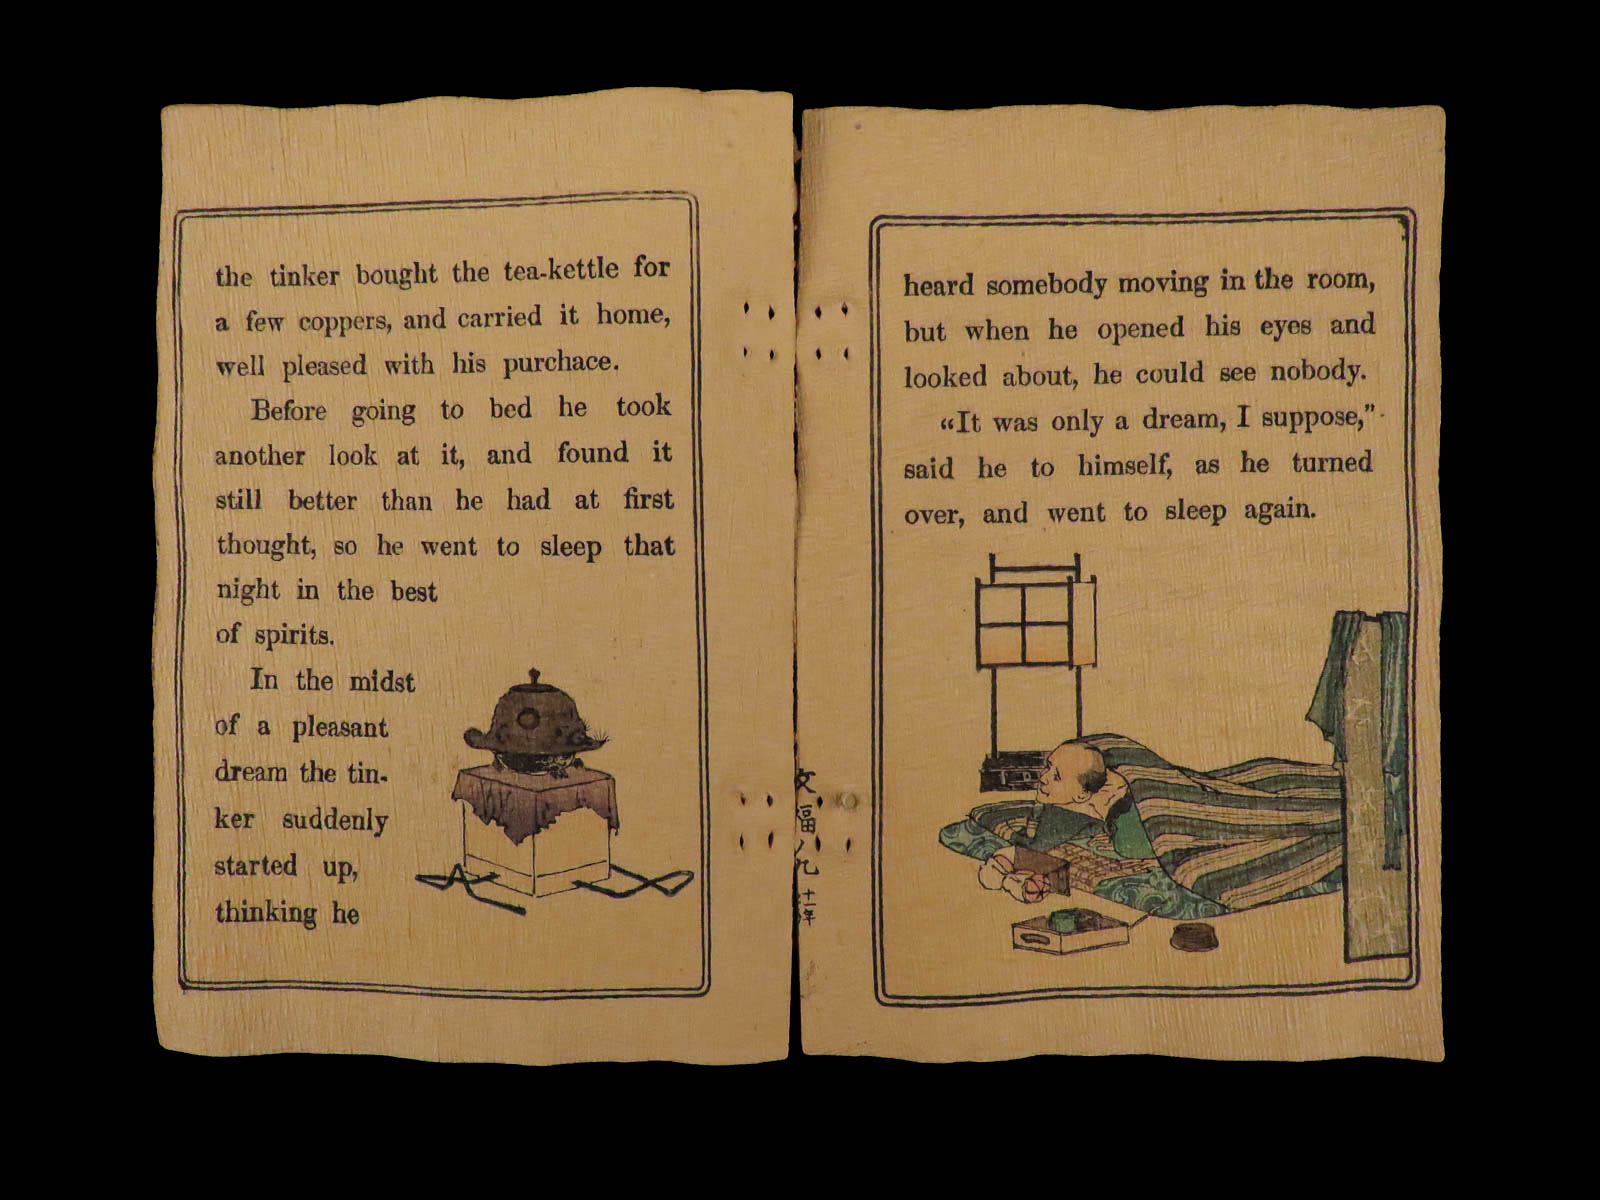 the tinker bought the tea-kettle for
a few coppers, and carried it home,
well pleased with his purchace.
Before going to bed he took
another look at it, and found it
still better than he had at first
thought, so he went to sleep that
night in the best
of spirits.
In the midst
of a pleasant
dream the tin-
ker suddenly
started up,
thinking he
heard somebody moving in the room,
but when he opened his eyes and
looked about, he could see nobody.
“It was only a dream, I suppose,”
said he to himself, as he turned
over, and went to sleep again.
文福
十一年